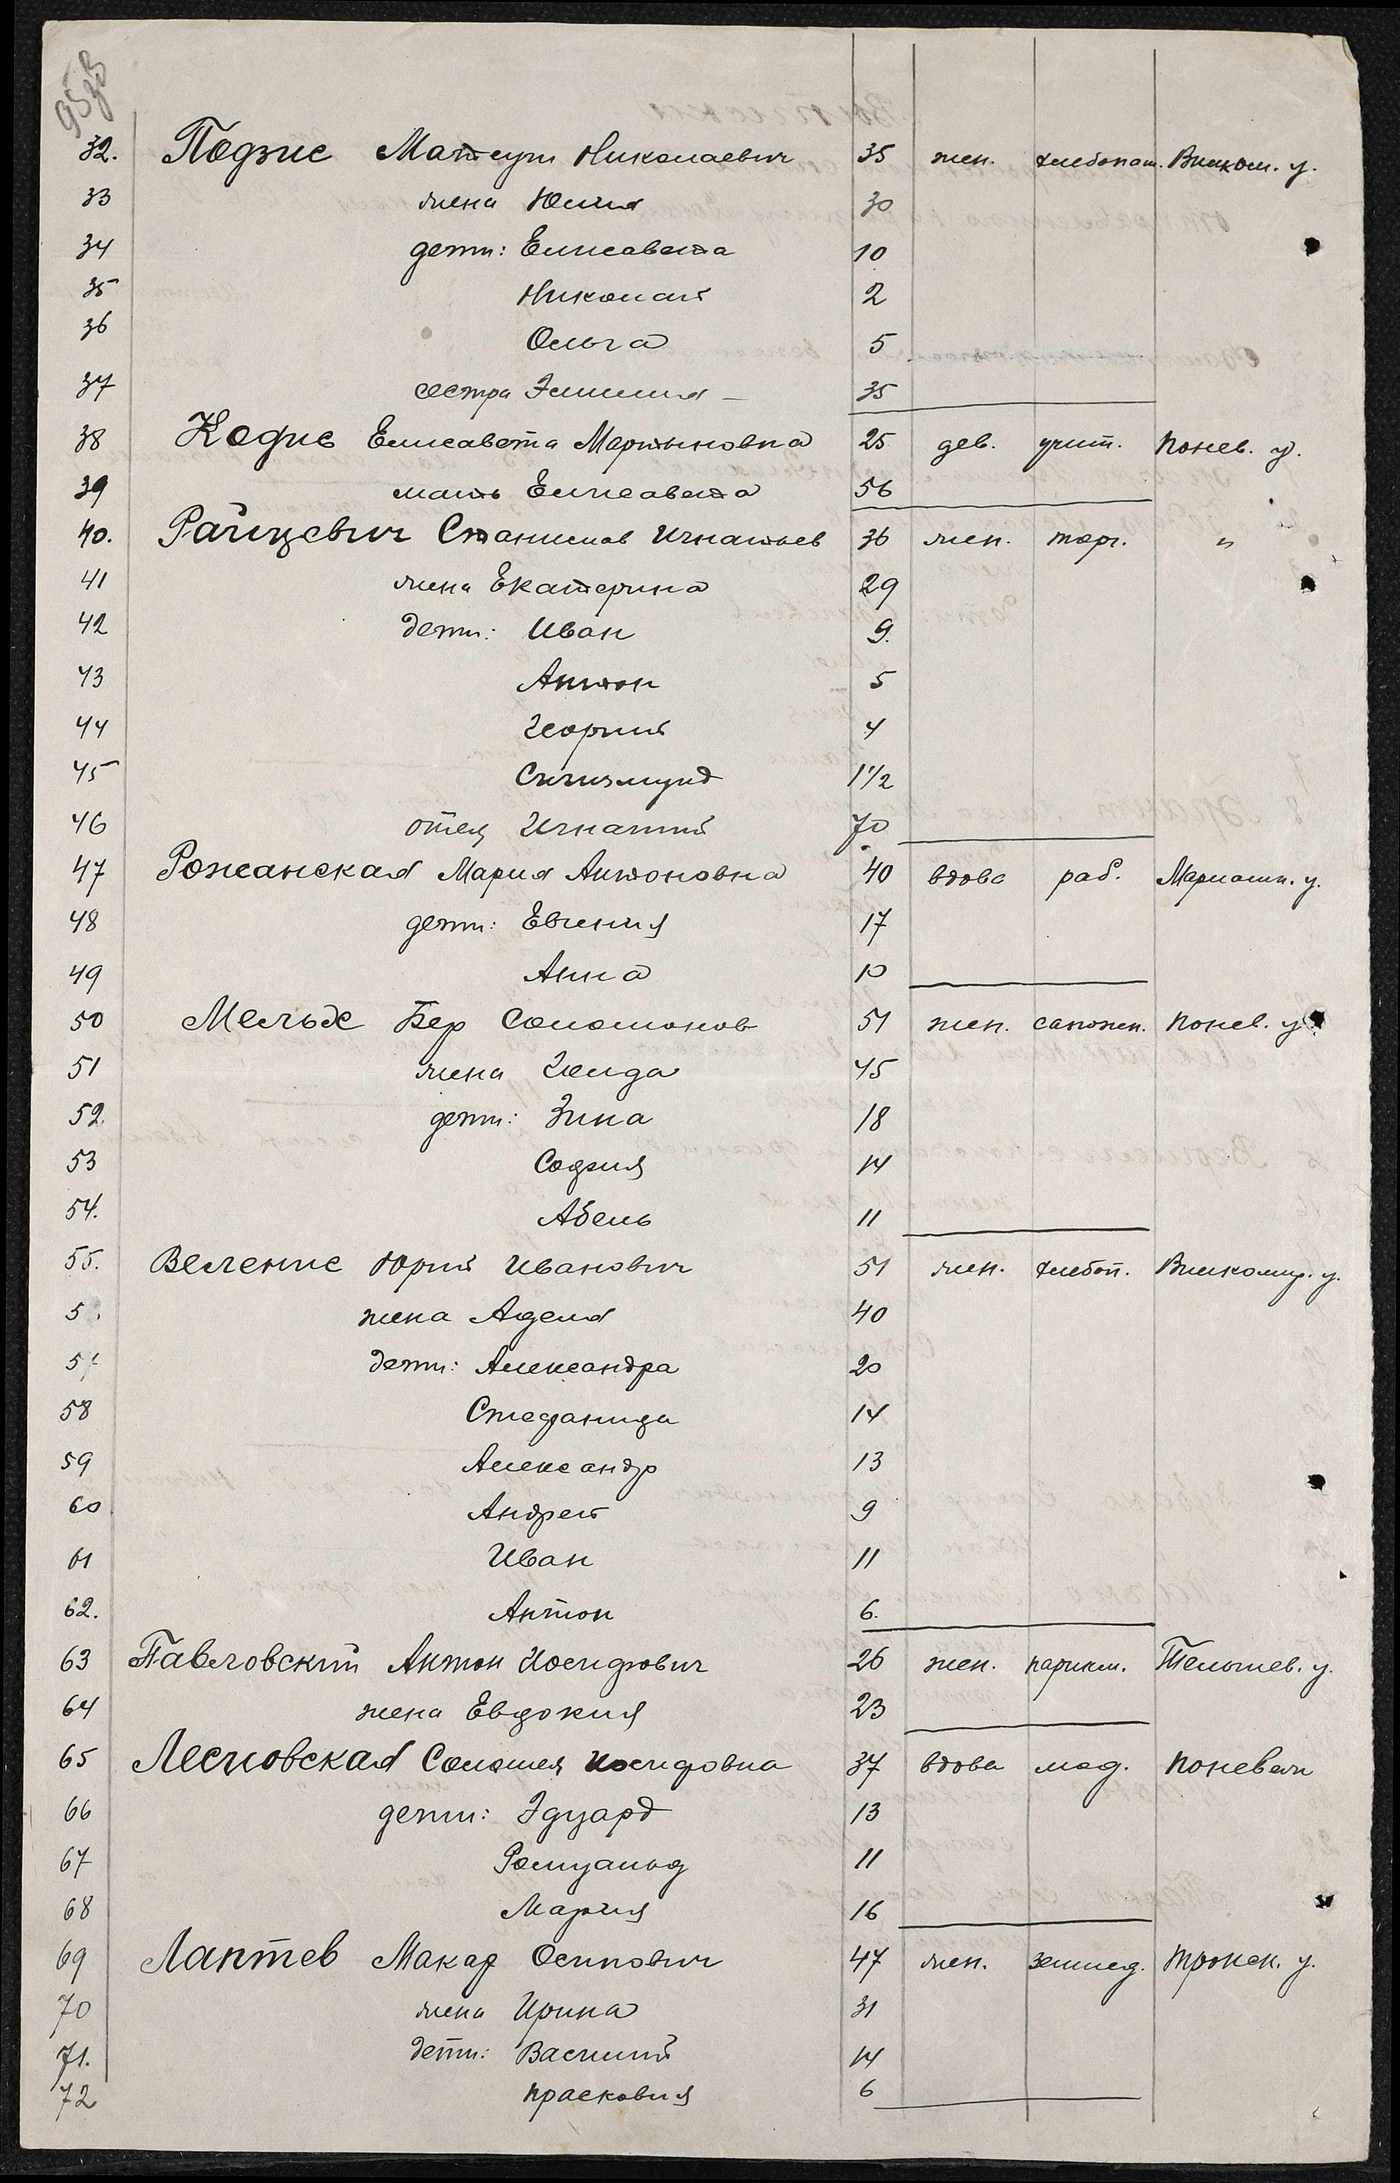 95об
32. Подзис Матеуш Николаевич 35 жен. хлебопаш. Вилком. у.
33 жена Юлия 30
34 дети: Елисавета 10
35 Николай 2
36 Ольга 5
37 сестра Эмилия — 35
38 Кодис Елисавета Мартыновна 25 дев. учит. Понев. у.
39 мать Елисавета 56
40. Райцевич Станислав Игнатьев 36 жен. торг. "
41 жена Екатерина 29
42 дети: Иван 9.
43 Антон 5
44 Георгий 4
45 Сигизмунд 1 1/2
46 отец Игнатий 70
47 Рожанская Мария Антоновна 40 вдова раб. Мариамп. у.
48 дети: Евгения 17
49 Анна 10
50 Мельдс Бер Соломонов 51 жен. сапожн. Понев. у.
51 жена Голда 45
52. дети: Зина 18
53 София 14
54. Абель 11
55. Веление Юрий Иванович 51 жен. хлебоп. Вилкомир. у.
5 . жена Аделя 40
57 дети: Александра 20
58 Стефанида 14
59 Александр 13
60 Андрей 9
61 Иван 11
62. Антон 6.
63 Павловский Антон Иосифович 26 жен. парикм. Тельшев. у.
64 жена Евдокия 23
65 Лесновская Саломея Иосифовна 37 вдова мод. Поневеж
66 дети: Эдуард 13
67 Ромуальд 11
68 Мария 16
69 Лаптев Макар Осипович 47 жен. землед. Трокск. у.
70 жена Ирина 31
71. дети: Василий 14
72 Прасковия 6